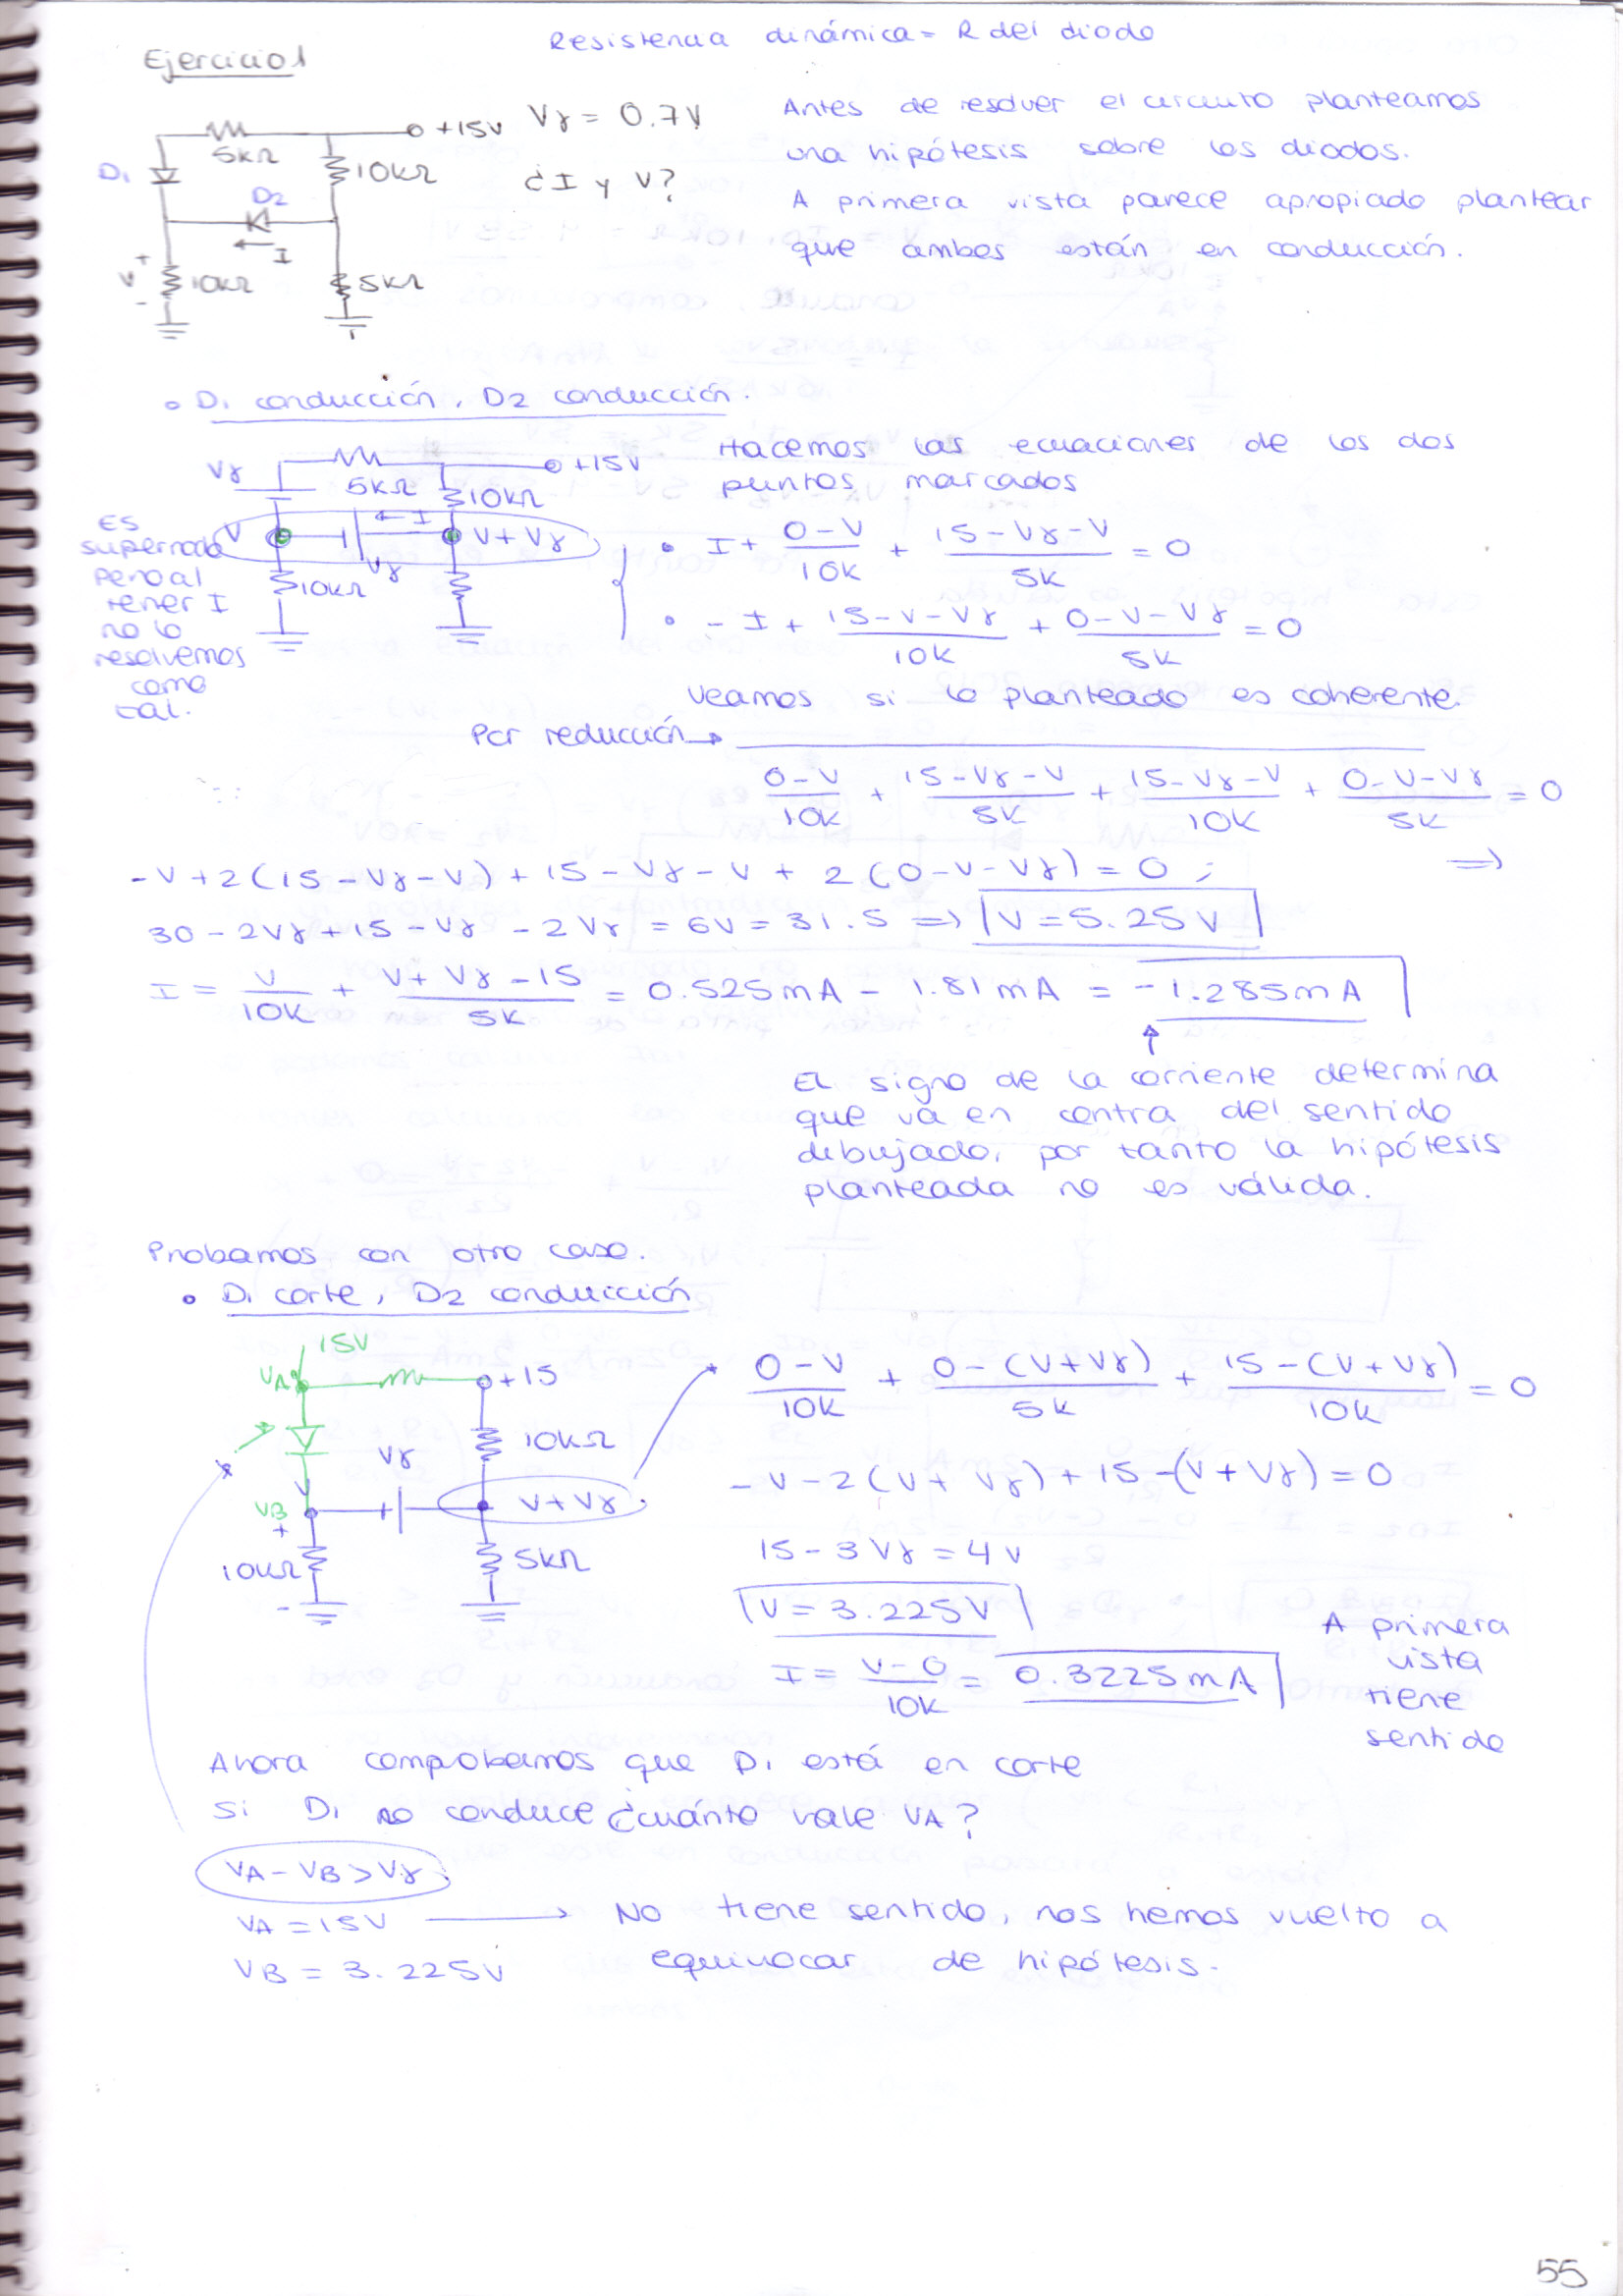 Resistencia dinámica = R del diodo
Ejercicio 1
+15V
5kΩ
10kΩ
D1
D2
I
V
+
-
10kΩ
5kΩ
Vγ = 0.7V
¿I y V?
Antes de resolver el circuito planteamos
una hipótesis sobre los diodos.
A primera vista parece apropiado plantear
que ambos están en conducción.
• D1 conducción, D2 conducción.
Vγ
5kΩ
+15V
10kΩ
I
V
V+Vγ
Vγ
10kΩ
Es
supernodo
pero al
tener I
no lo
resolvemos
como
tal.
Hacemos las ecuaciones de los dos
puntos marcados
• I + (0-V)/10K + (15-Vγ-V)/5K = 0
• -I + (15-V-Vγ)/10K + (0-V-Vγ)/5K = 0
Veamos si lo planteado es coherente.
Por reducción →
(0-V)/10K + (15-Vγ-V)/5K + (15-Vγ-V)/10K + (0-V-Vγ)/5K = 0
⇒
-V+2(15-Vγ-V)+15-Vγ-V+2(0-V-Vγ) = 0 ;
30-2Vγ+15-Vγ-2Vγ = 6V = 31.5 ⇒ V = 5.25V
I = V/10K + (V+Vγ-15)/5K = 0.525mA - 1.81mA = -1.285mA
↑
El signo de la corriente determina
que va en contra del sentido
dibujado, por tanto la hipótesis
planteada no es válida.
Probamos con otro caso.
• D1 corte, D2 conduicción
15V
VA
+15
10kΩ
Vγ
V
VB
V+Vγ
+
10kΩ
-
5kΩ
(0-V)/10K + (0-(V+Vγ))/5K + (15-(V+Vγ))/10K = 0
-V-2(V+Vγ)+15-(V+Vγ) = 0
15-3Vγ = 4V
V = 3.225V
I = (V-0)/10K = 0.3225mA
A primera
vista
tiene
sentido
Ahora comprobamos que D1 está en corte
Si D1 no conduce ¿cuánto vale VA?
VA-VB>Vγ
VA = 15V → No tiene sentido, nos hemos vuelto a
VB = 3.225V equivocar de hipótesis.
55